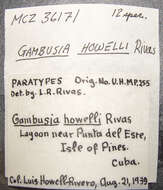 MCZ 36171
18 spec.
GAMBUSIA HOWELLI Rivas
PARATYPES Orig. No. U.H.MP.255
Det. by. L.R. Rivas.
Gambusia howelli Rivas
Lagoon near Punta del Este,
Isle of Pines.
Cuba.
Col. Luis Howell-Rivero, Aug. 21, 1939